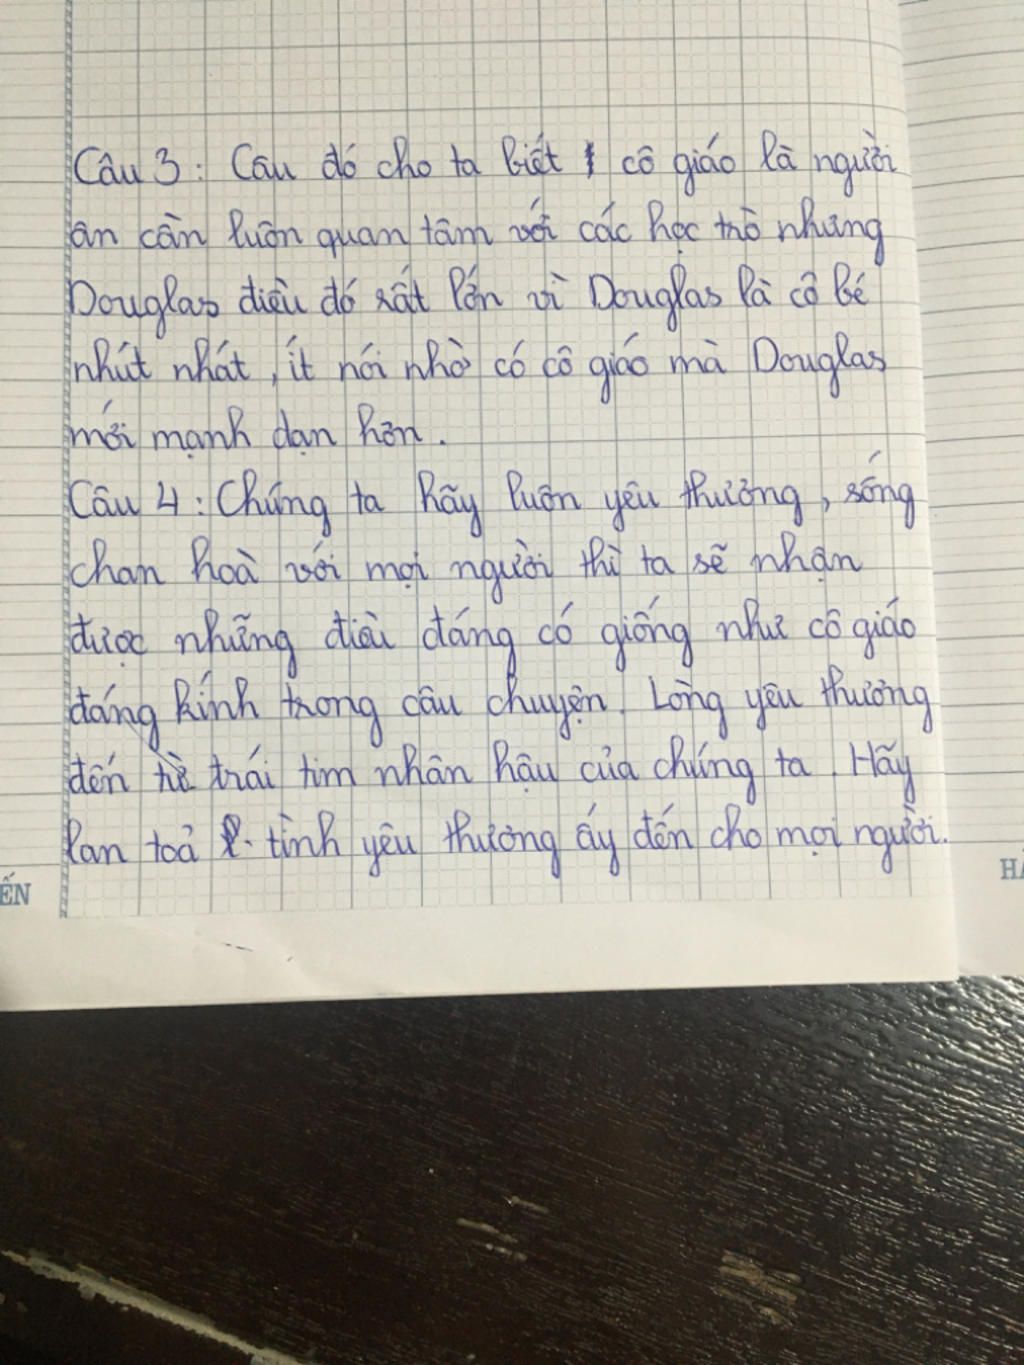 Câu 3: Câu đó cho ta biết cô giáo là người
ân cần luôn quan tâm với các học trò nhưng
Douglas điều đó rất lớn vì Douglas là cô bé
nhút nhát, ít nói nhờ có cô giáo mà Douglas
mới mạnh dạn hơn.
Câu 4: Chúng ta hãy luôn yêu thương, sống
chan hoà với mọi người thì ta sẽ nhận
được những điều đáng có giống như cô giáo
đáng kính trong câu chuyện. Lòng yêu thương
đến từ trái tim nhân hậu của chúng ta. Hãy
lan toả tình yêu thương ấy đến cho mọi người.
ẾN
HẢ